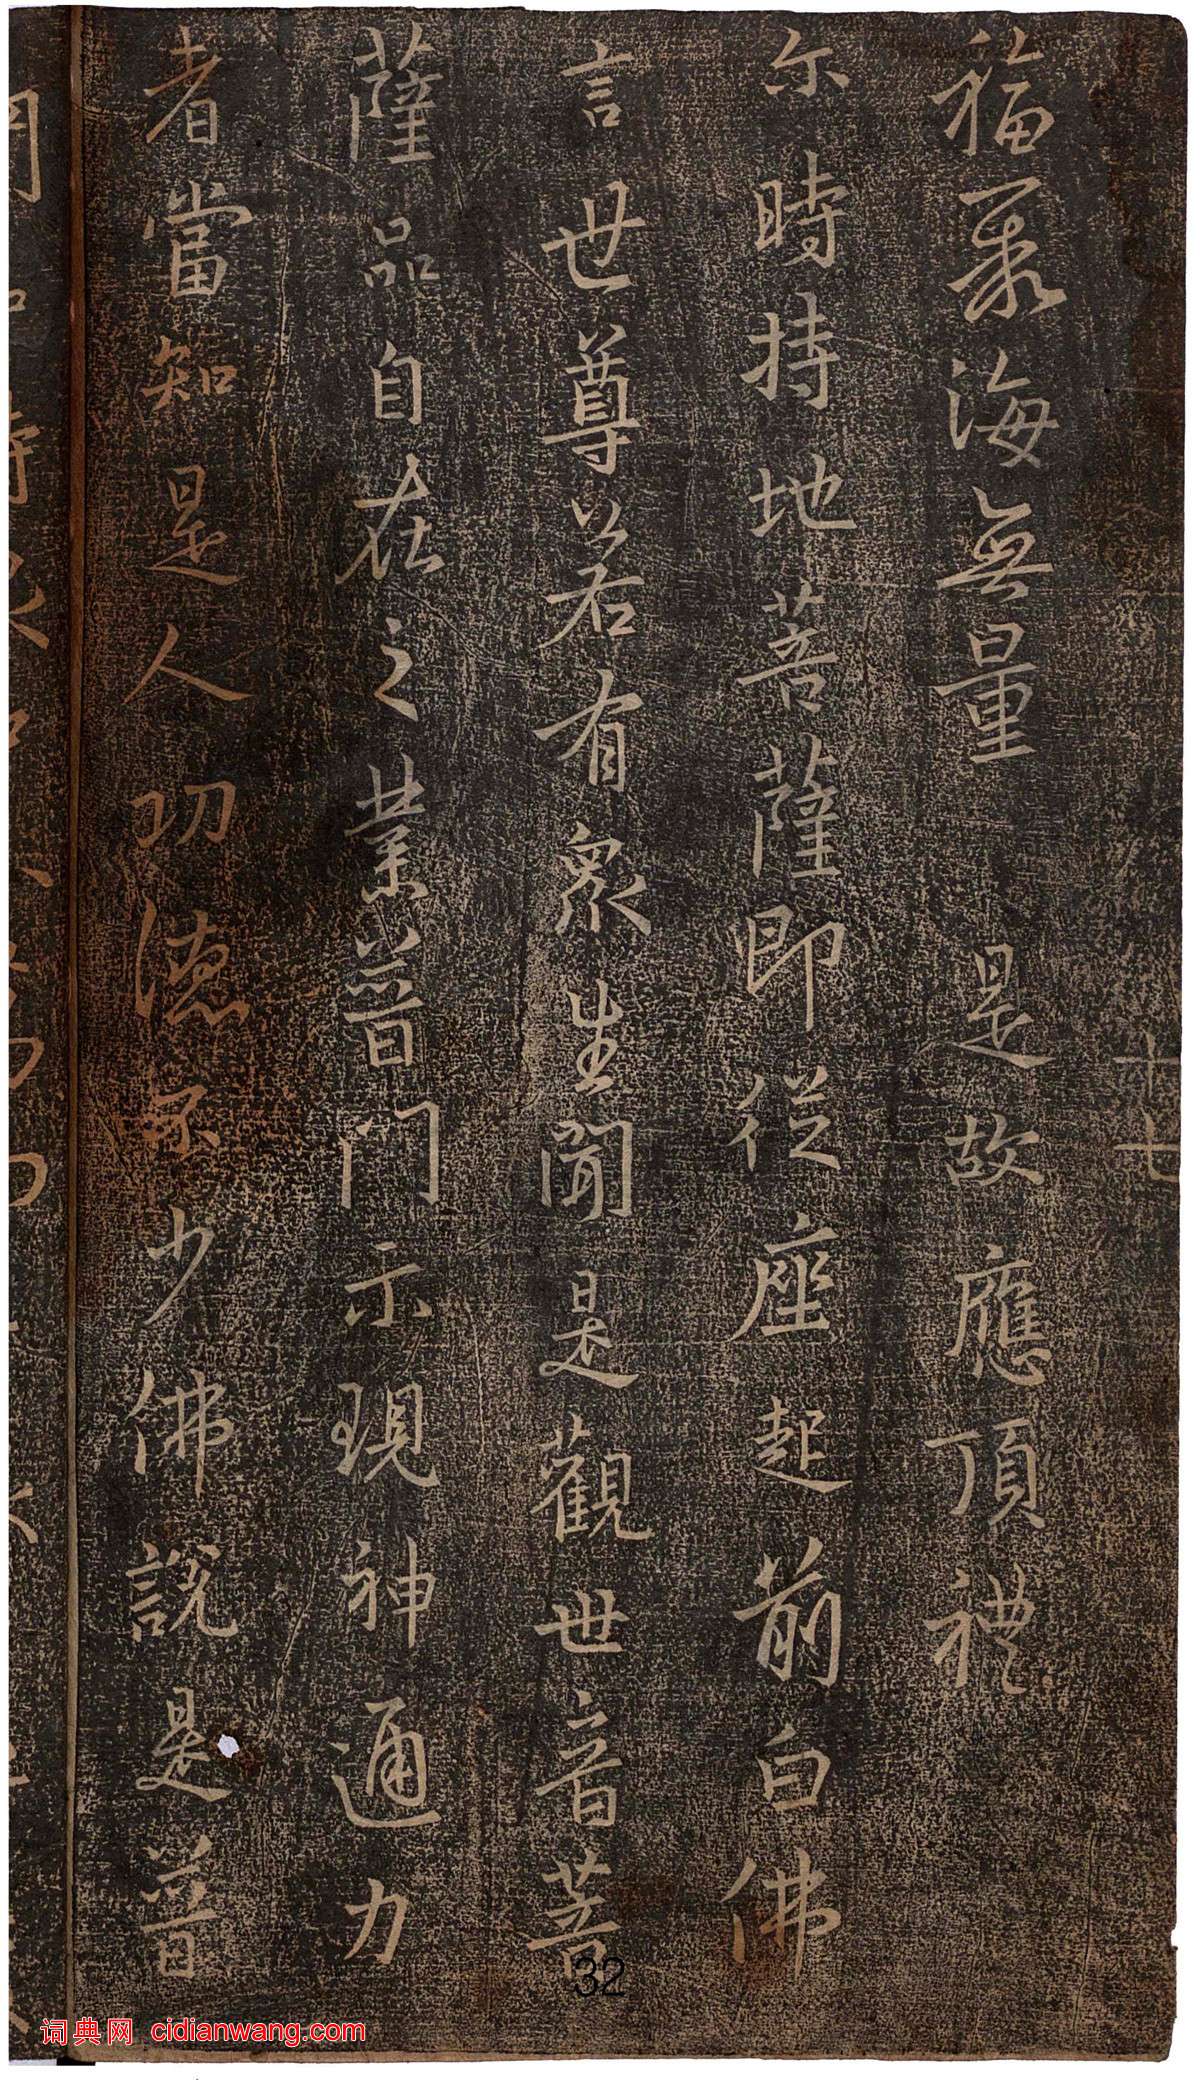 十七
福聚海無量 是故應頂禮
尔時持地菩薩即從座起前白佛
言世尊若有眾生聞是觀世音菩
薩品自在之業普門示現神通力
者當知是人功德不少佛說是普
32
词典网 cidianwang.com